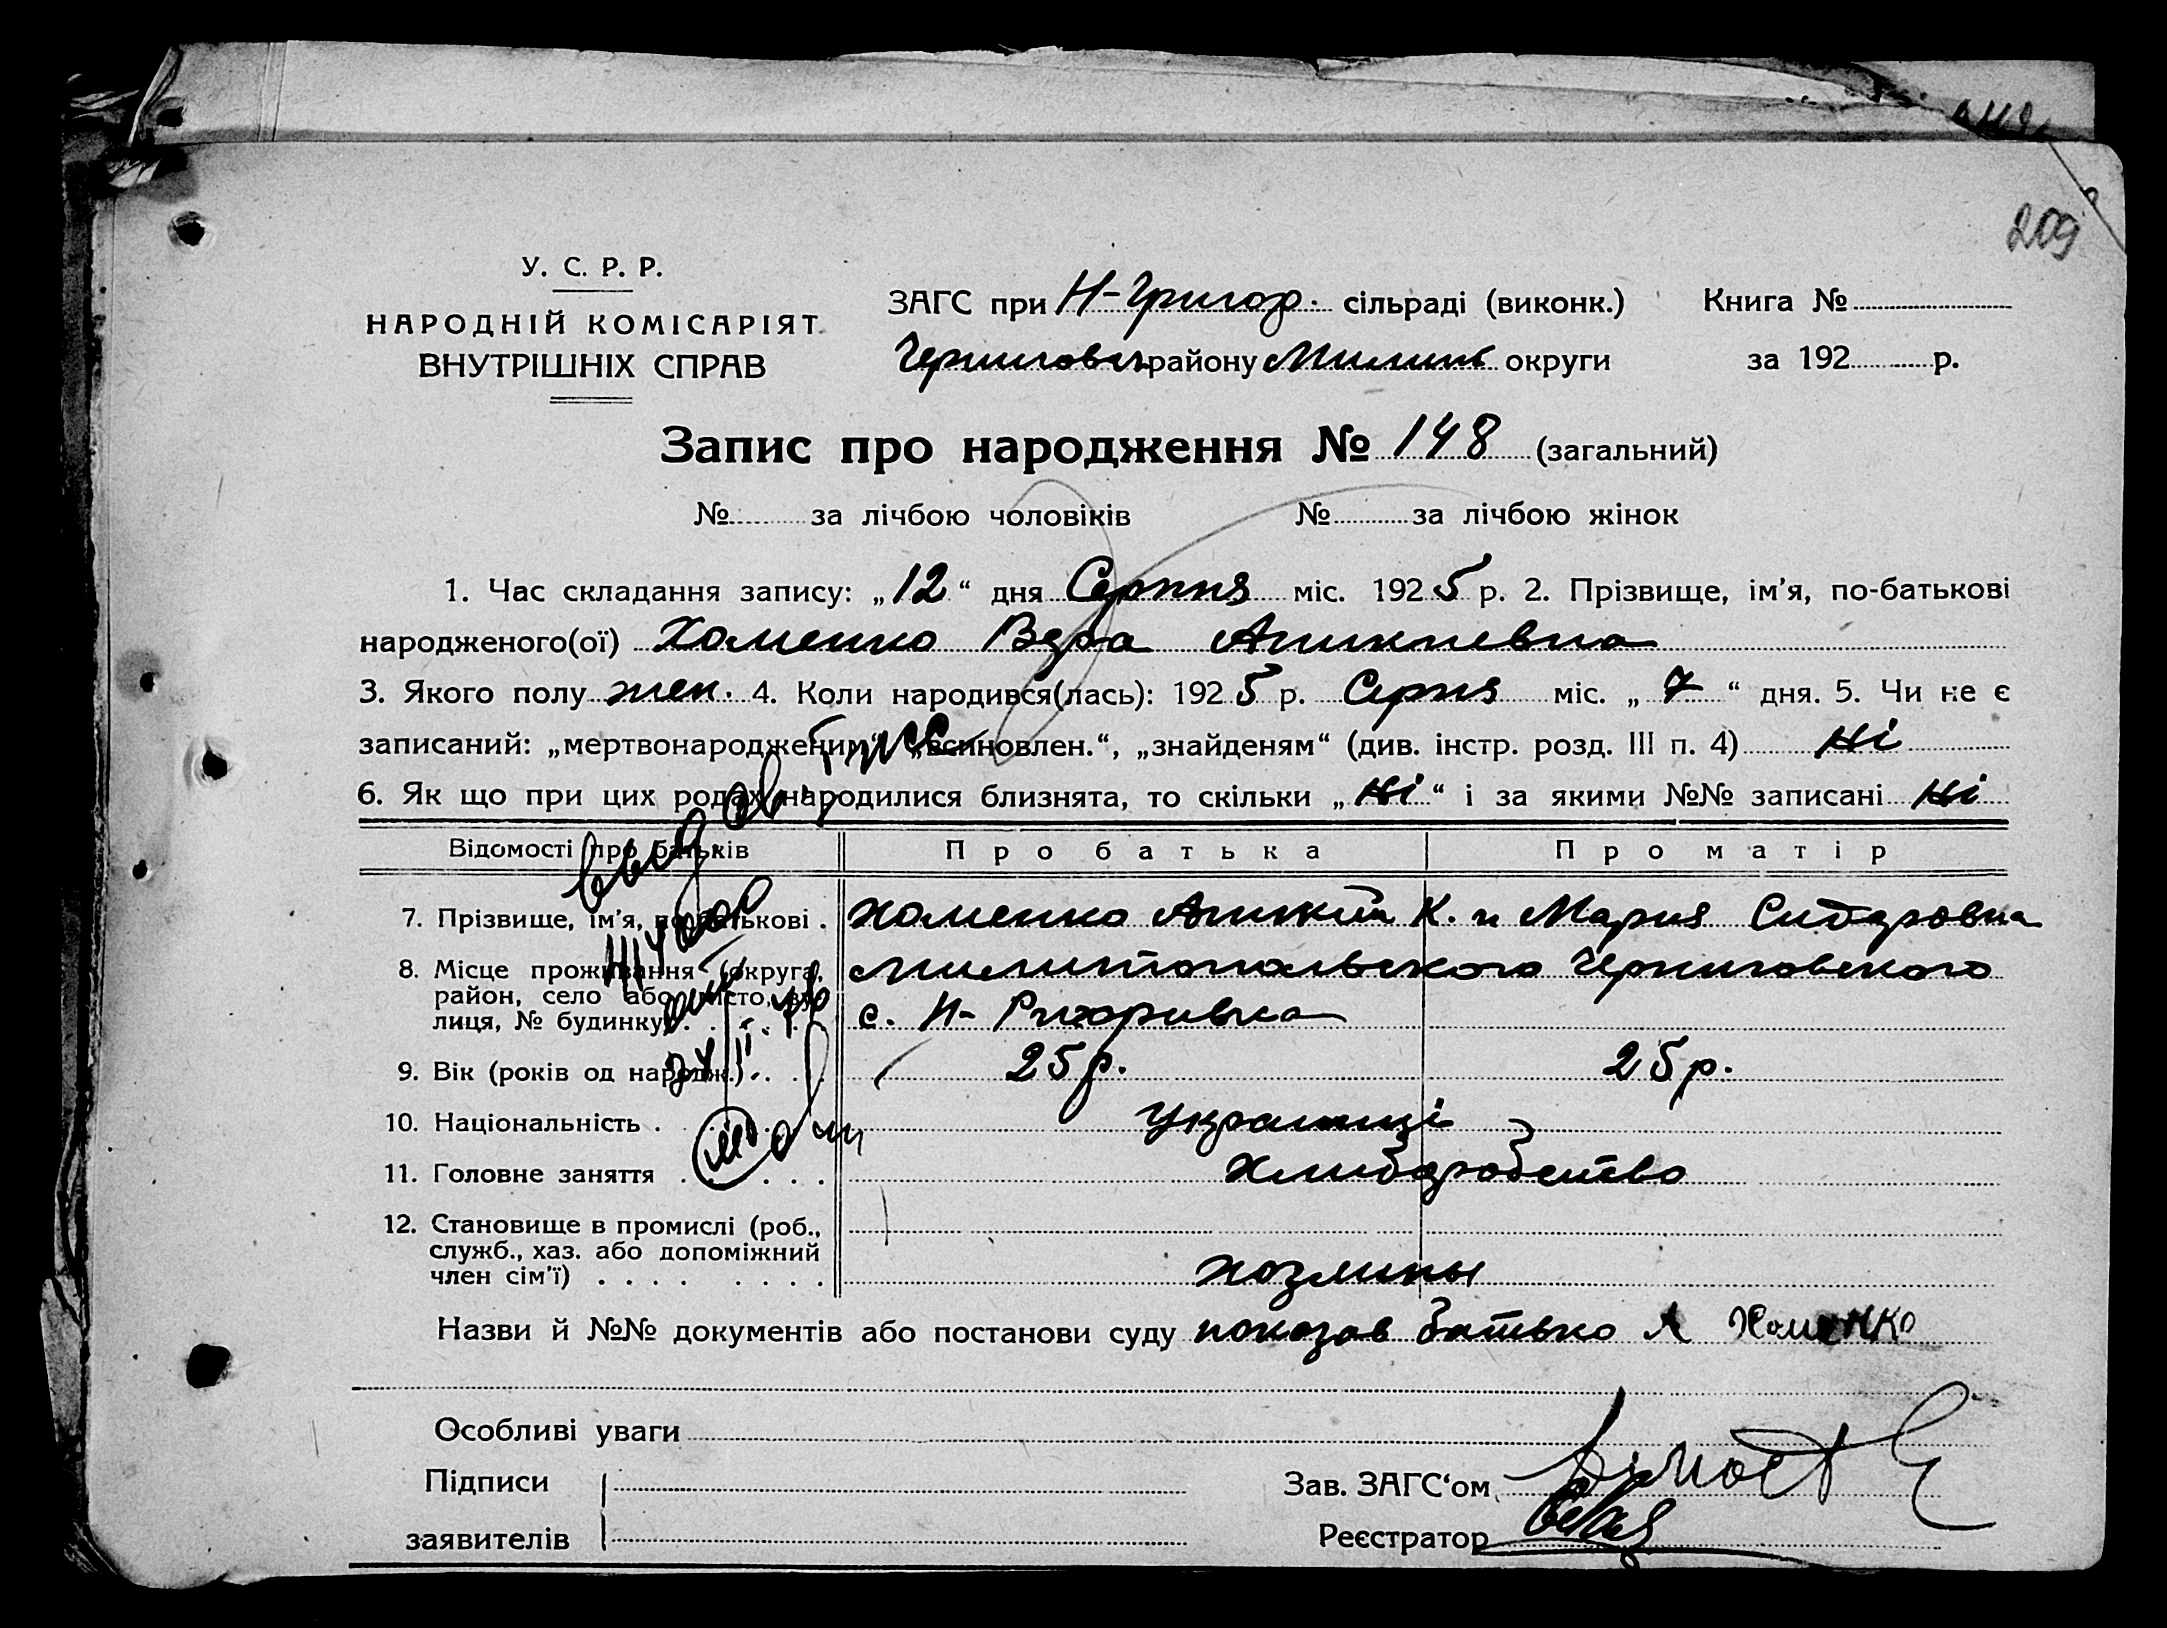 209
У. С. Р. Р.
НАРОДНІЙ КОМІСАРІЯТ
ВНУТРІШНІХ СПРАВ
ЗАГС при Н-Григор. сільраді (виконк.) Книга №
району округи за 192 р.
Запис про народження № 148 (загальний)
№ за лічбою чоловіків № за лічбою жінок
1. Час складання запису: „12“ дня Серпня міс. 1925 р. 2. Прізвище, ім'я, по-батькові
народженого(ої) Хоменко Вера
3. Якого полу жен. 4. Коли народився(лась): 1925 р. Серпня міс. „7“ дня. 5. Чи не є
записаний: „мертвонародженим“, „всиновлен.“, „знайденям“ (див. інстр. розд. III п. 4) Ні
6. Як що при цих родах народилися близнята, то скільки „Ні“ і за якими №№ записані Ні
Відомості про батьків Про батька Про матір
7. Прізвище, ім'я, по-батькові . Хоменко К. и Мария Сидоровна
8. Місце проживання (округа, Мелитопольского Черниговского
район, село або місто, ву-
лиця, № будинку) с. Н-
9. Вік (років од народж.) 25 р. 25 р.
10. Національність . Украинці
11. Головне заняття . Хлиборобство
12. Становище в промислі (роб.,
служб., хаз. або допоміжний
член сім'ї) . . . . . . . .
Назви й №№ документів або постанови суду показав батько А Хоменко
Особливі уваги
Підписи
Зав. ЗАГС‘ом
заявителів
Реєстратор